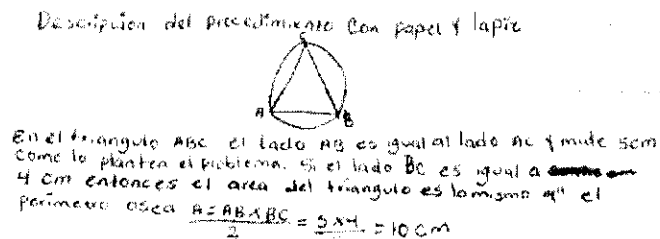 Descripción del procedimiento con papel y lapiz
C
A
B
En el triangulo ABC el lado AB es igual al lado AC y mide 5cm
como lo plantea el problema. Si el lado BC es igual a
4 cm entonces el area del triangulo es lo mismo q" el
perimetro osea A = AB x BC / 2 = 5 x 4 / = 10 cm